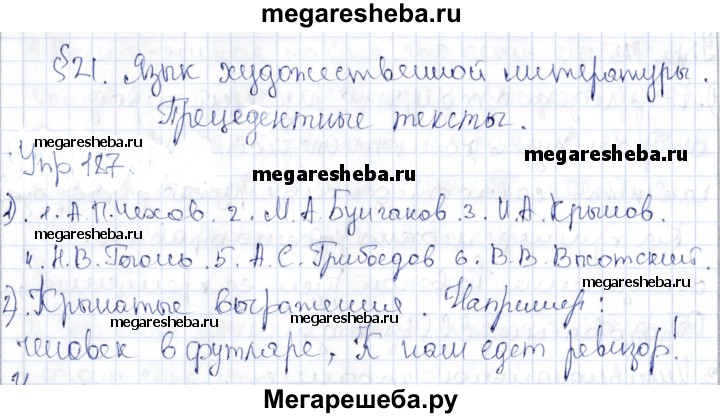 megaresheba.ru
§21. Язык художественной литературы.
Прецедентные тексты.
megaresheba.ru megaresheba.ru
Упр 187.
megaresheba.ru
1). 1. А.П.Чехов. 2. М.А.Булгаков. 3. И.А.Крылов.
megaresheba.ru
4. Н.В.Гоголь. 5. А.С.Грибоедов 6. В.В.Высотский.
megaresheba.ru
2). Крылатые выражения. Например:
megaresheba.ru megaresheba.ru
человек в футляре, К нам едет ревизор!
Мегарешеба.ру